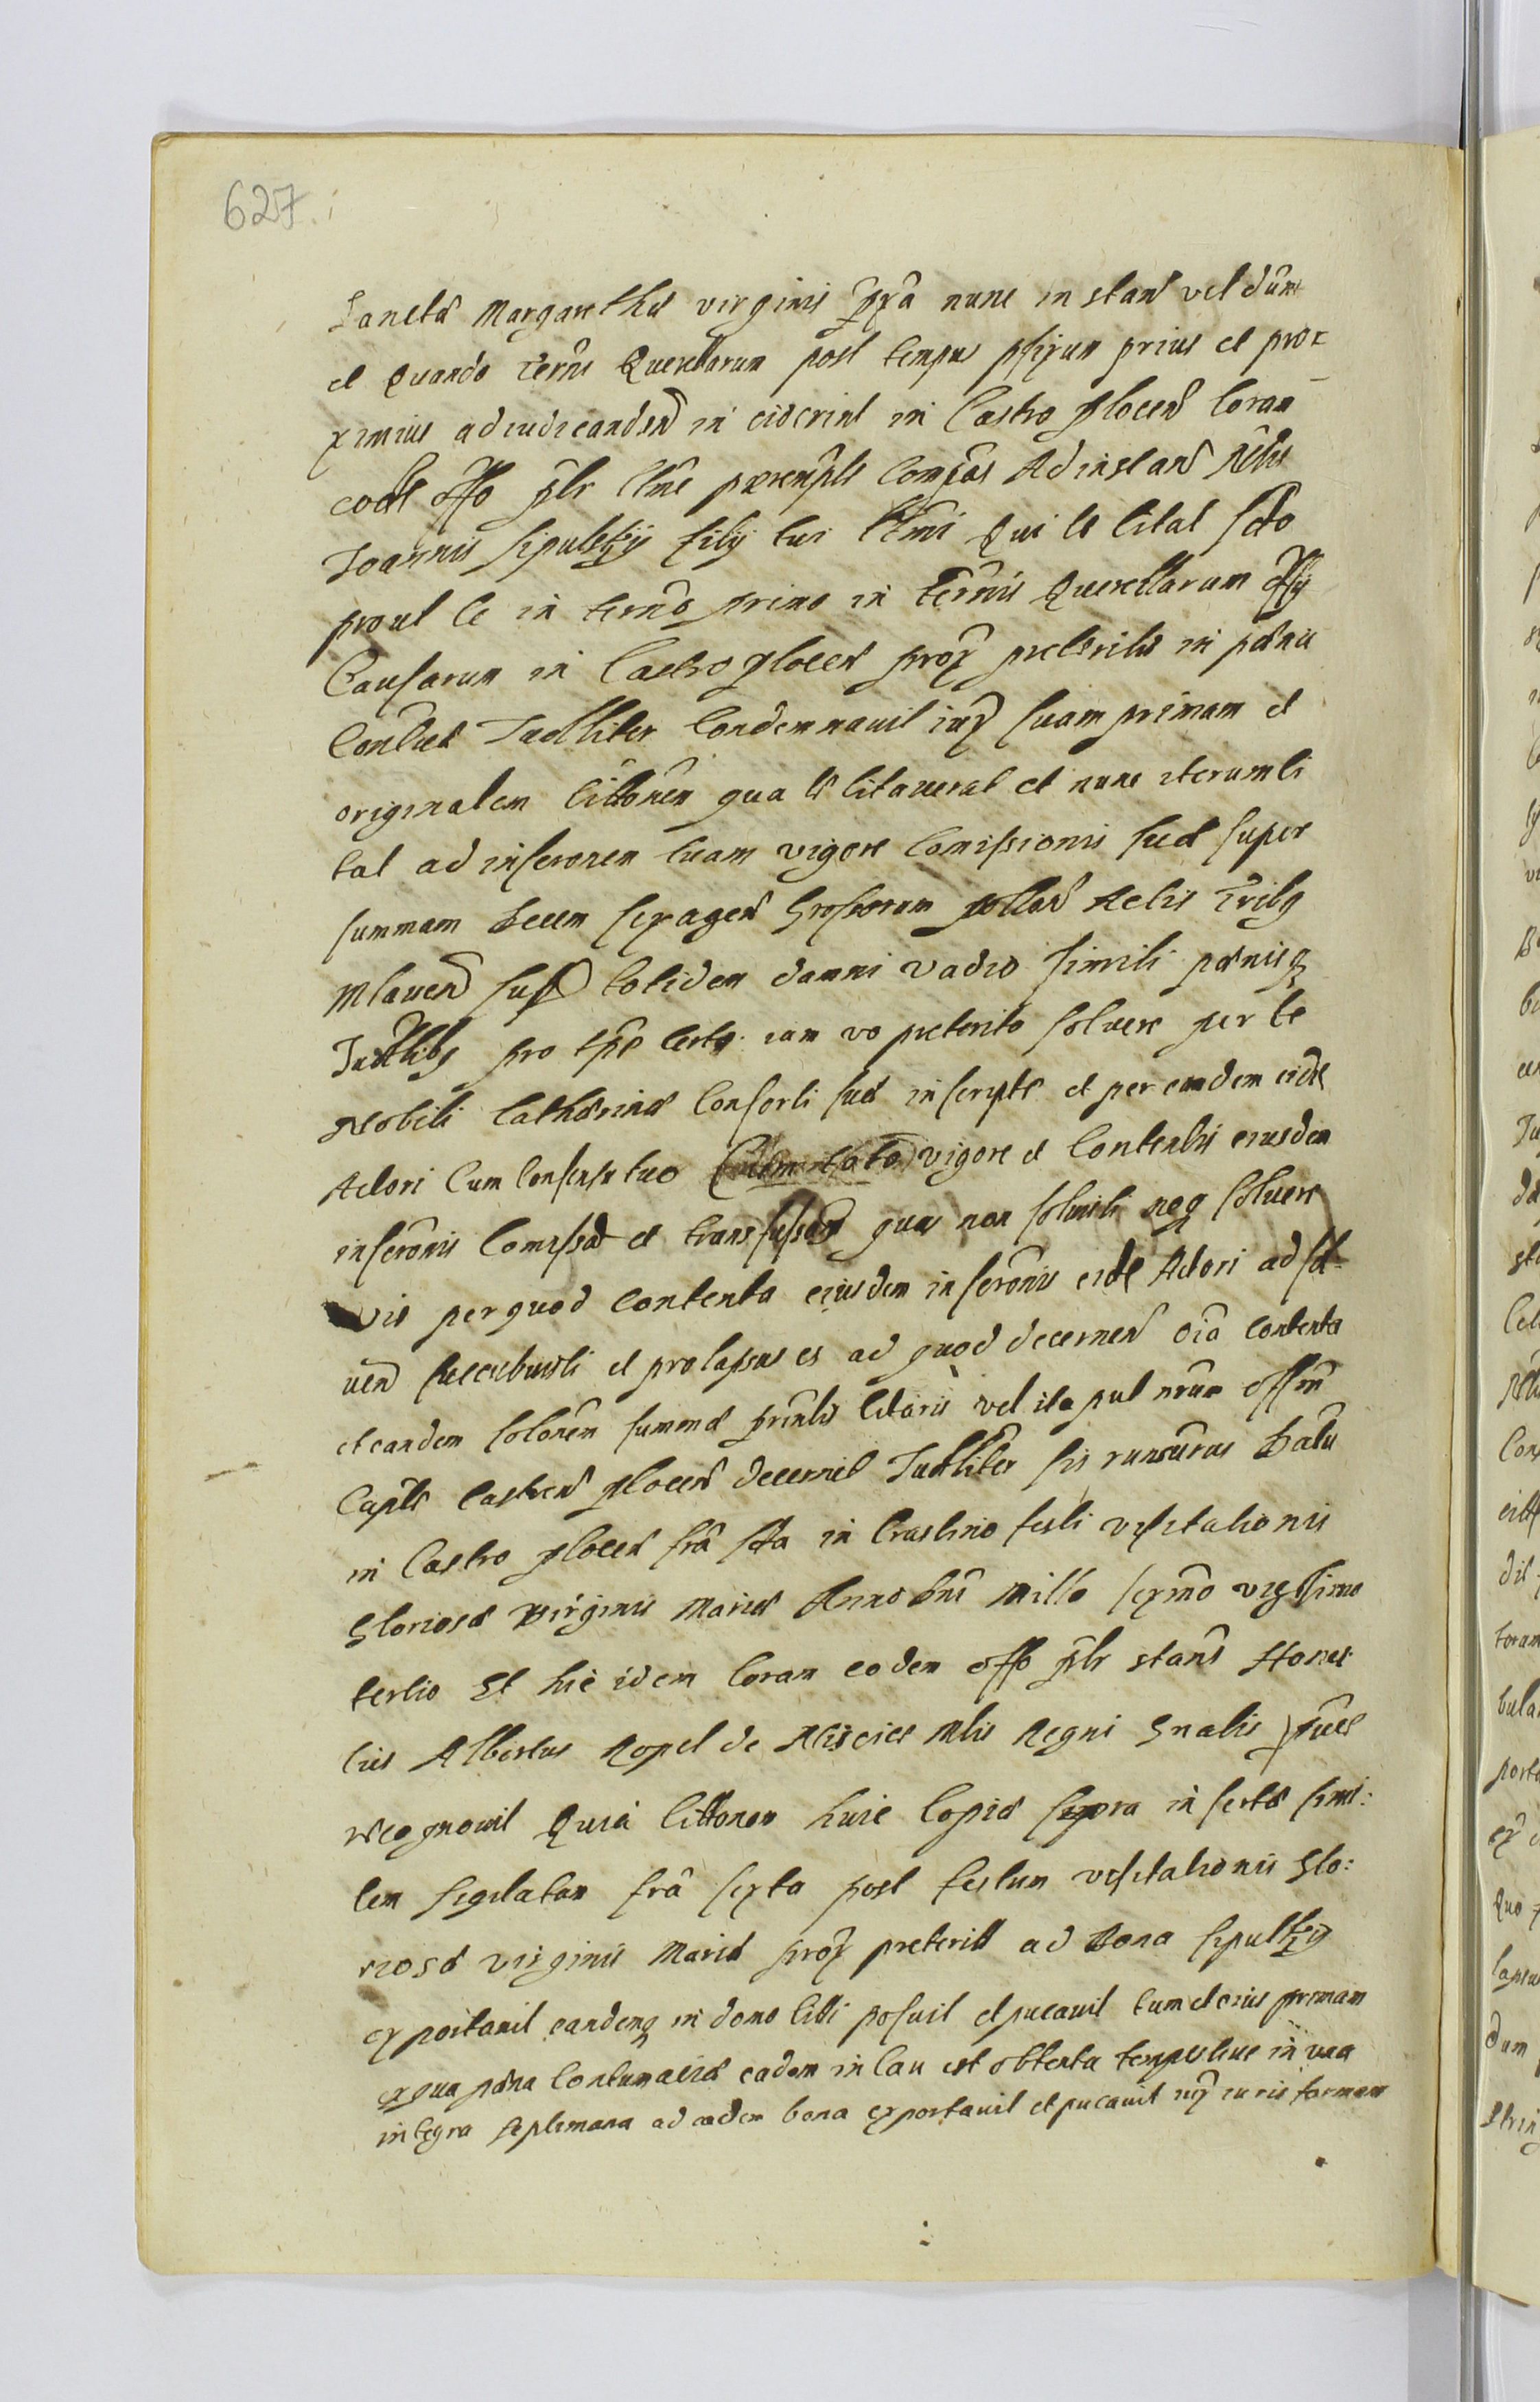 627.
Sanctæ Margarethæ virginis prã nunc instan vel dum
et Quando Termi Querellarum post tempus pfixum prius et pro=
ximius adiudicandæn inciderint in Castro ploceñ Coram
eodẽ offo plr ttme peremptẽ Compas Ad instanã Nobis
Joannis sipulskij filij tui ttmi Qui te citat scdo
prout te in termo primo in terminis Querellarum offij
Causarum in Castro ploceñ prox preteritis in pæna
Contuæ Judtliter Condemnavit iux suam primam et
originalem littonem qua te citaverat et nunc iterum ci
tat ad inscronem tuam vigore Comissionis suæ super
summam Decem sexageñ Grossorum pollañ Actis Tribq
Mlaveñ susp totidem damni vadio simili pænisq
Judtlibq pro tpe certo iam vo preterito solvere per te
Nobili Catharinæ Consorti suæ inscriptæ et per eandem eidẽ
Actori Cum Consensu tuo vigore et Contentis eiusdem
inscronis Comissæ et transfusam quas non solvisti neq solvere
vis per quod contenta eiusdem inscronis eidẽ Actori ad sol=
ueñ succubuisti et prolapsus es ad quod decerneñ oia contenta
et eandem solonem summæ prinlis Citaris vel ita put nrum offm
Capitẽ Castreñ ploceñ decernet Judtliter sis runsurus Datũ
in Castro ploceñ fra sta in Crastino festi visitationis
Gloriosæ Virginis Mariæ Anno Dni Millo sexmo vigesimo
tertio Et hic idem Coram eodem offo plr stans Hones
tus Albertus Kopel de Misciet Mlis Regni Gnalis
recognovit Quia littonem huic Copiæ supra insertæ simi:
lem sigilatam fra sexta post festum visitationis Glo:
riosæ virginis Mariæ prox preteritt ad Bona sipulkij
exportavit eandemq in domo Citti posuit et pucavit tum et eius primam
ex qua pæna Contumaciæ eadem in Cau est obtenta tempestive in una
integra septimana ad eadem bona exportavit et pucavit iux iuris formam